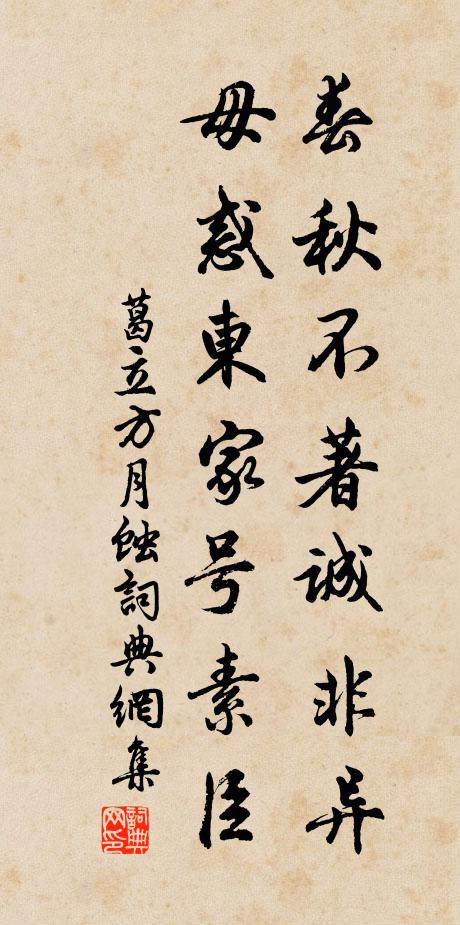 春秋不著誠非异
毋惑東家号素臣
葛立方月蝕詞典網集
詞典网印